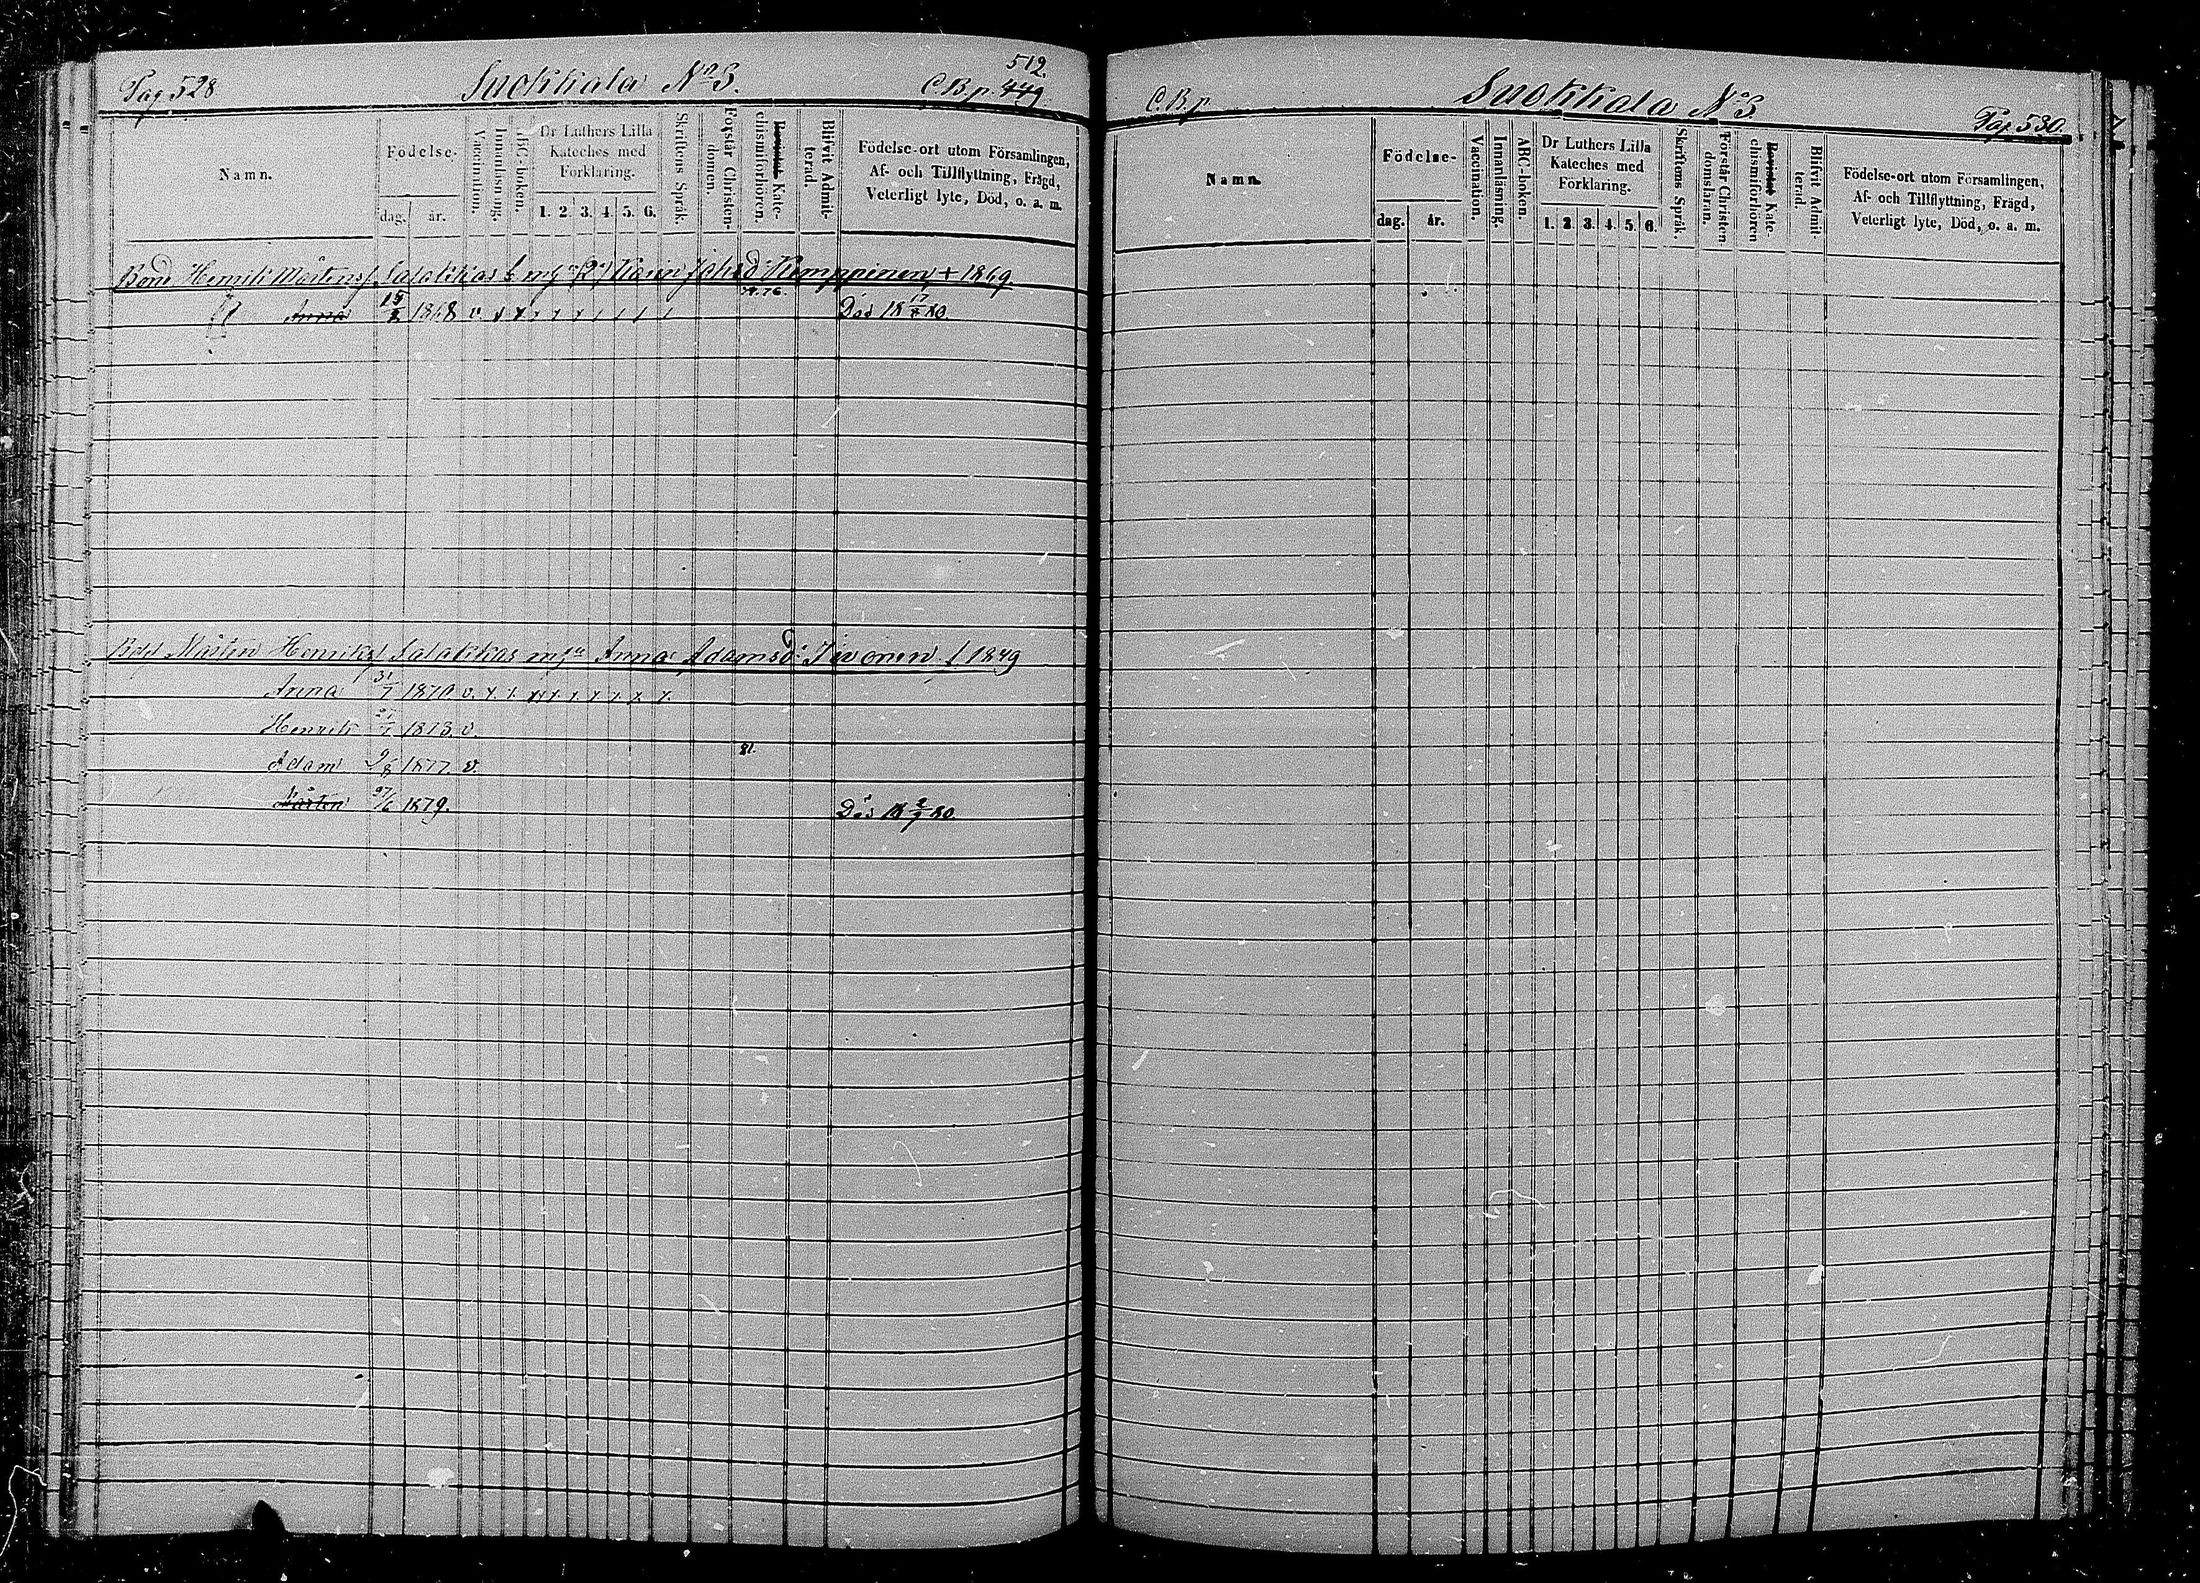 Pag 528 Suokkala No 3. C.B.p. 449 512.
Namn.
Födelse-
dag. år.
Vaccination.
Innanläsning.
ABC-boken.
Dr Luthers Lilla
Kateches med
Förklaring.
1. 2. 3. 4. 5. 6.
Skriftens Språk.
Förstår Christen-
domen.
Bevistat Kate-
chismiförhören.
Blifvit Admit-
terad.
Födelse-ort utom Församlingen,
Af- och Tillflyttning, Frägd,
Veterligt lyte, Död, o. a. m.
Bond Henrik Mårtens Salakkas Karin Johsd Kemppinen + 1869.
74. 76.
Anna 15/2 1868 v. x x x x x Död 18 17/ 80.
Bdd Mårten Henriks Salakkas Anna Adamsd: Iivonen f 1849
Anna 31/7 1870 v. x. x.
Henrik 1873. v.
81.
Adam 1877. v.
Mårten 27/6 1879. Död 18 2/9 80.
C.B.p. Suokkala No 3. Pag. 530.
Namn.
Födelse-
dag. år.
Vaccination.
Innanläsning.
ABC-boken.
Dr Luthers Lilla
Kateches med
Förklaring.
1. 2. 3. 4. 5. 6.
Skriftens Språk.
Förstår Christen
domsläran.
Bevistat Kate-
chismiförhören
Blifvit Admit-
terad.
Födelse-ort utom Församlingen,
Af- och Tillflyttning, Frägd,
Veterligt lyte, Död, o. a. m.